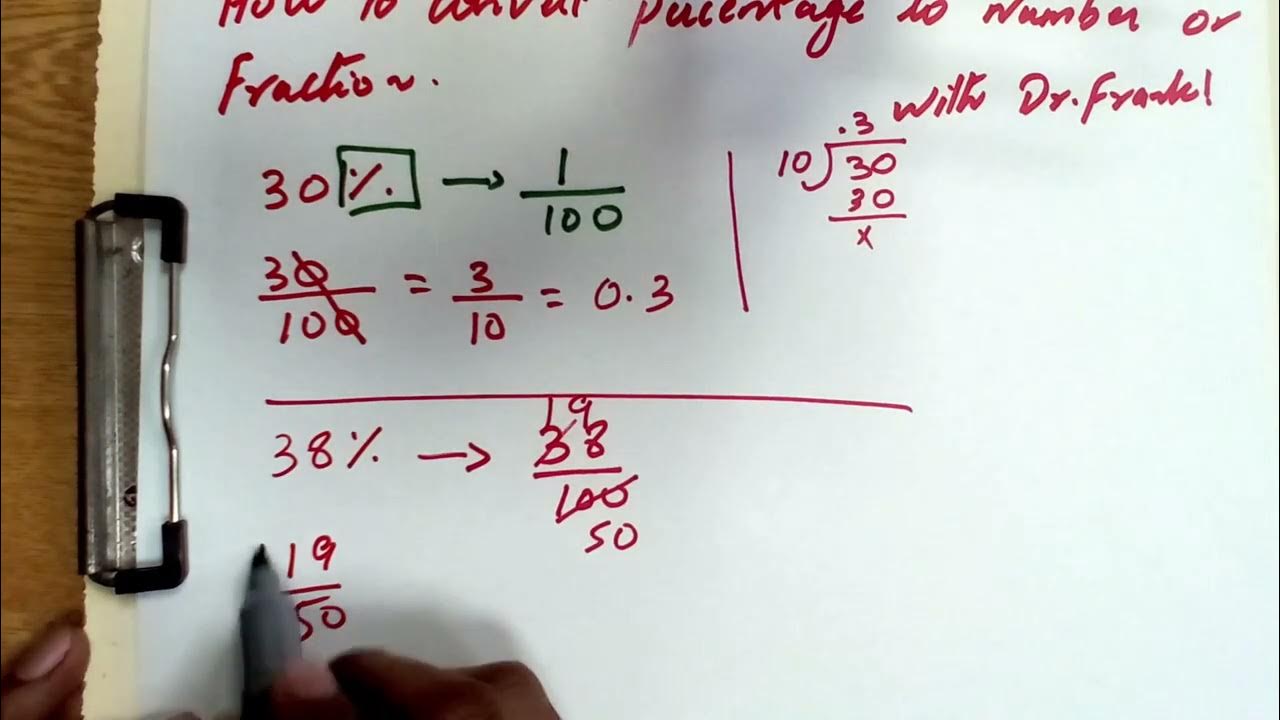 How to convert Percentage to Number or
Fraction.
With Dr. Frankl
30 % → 1/100
30/100 = 3/10 = 0.3
.3
10) 30
30
x
38% → 38/100
19
50
19/50